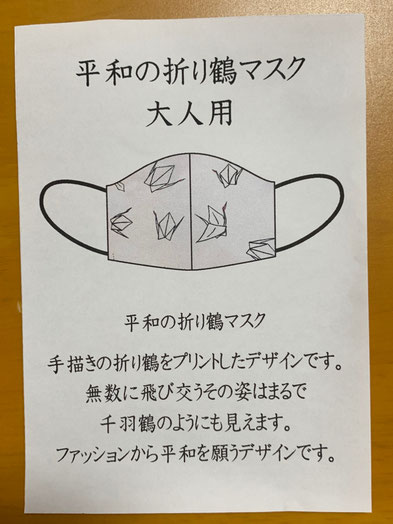 平和の折り鶴マスク
大人用
平和の折り鶴マスク
手描きの折り鶴をプリントしたデザインです。
無数に飛び交うその姿はまるで
千羽鶴のようにも見えます。
ファッションから平和を願うデザインです。